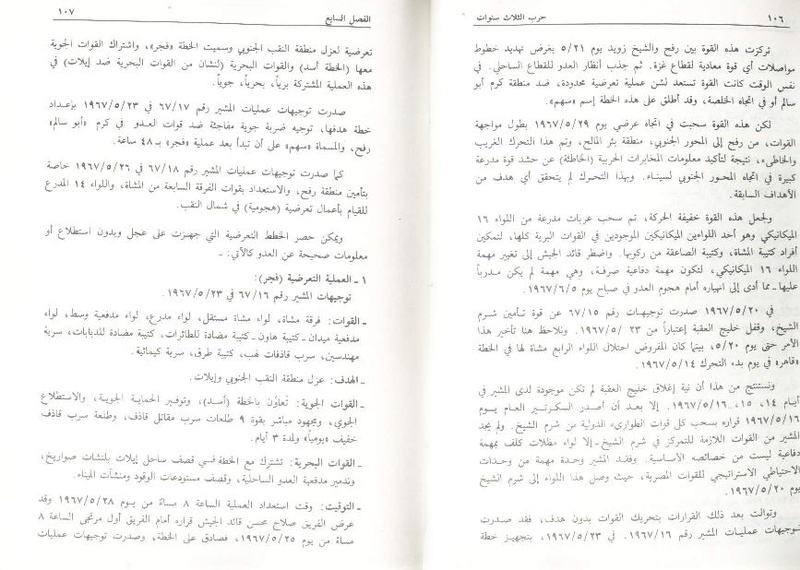 ١٠٦
حرب الثلاث سنوات
تركزت هذه القوة بين رفح والشيخ زويد يوم ٥/٢١ بغرض تهديد خطوط
مواصلات أي قوة معادية لقطاع غزة. ثم جذب أنظار العدو للقطاع الساحلي. في
نفس الوقت كانت القوة تستعد لشن عملية تعرضية محدودة، ضد منطقة كرم أبو
سالم أو في اتجاه الخلصة، وقد أطلق على هذه الخطة إسم «سهم».
لكن هذه القوة سحبت في اتجاه عرضي يوم ١٩٦٧/٥/٢٩ بطول مواجهة
القوات، من رفح إلى المحور الجنوبي، منطقة بئر المالح، وتم هذا التحرك الغريب
والخاطىء، نتيجة لتأكيد معلومات المخابرات الحربية (الخاطئة) عن حشد قوة مدرعة
كبيرة في اتجاه المحور الجنوبي لسيناء. وبهذا التحرك لم يتحقق أي هدف من
الأهداف السابقة.
ولجعل هذه القوة خفيفة الحركة، تم سحب عربات مدرعة من اللواء ١٦
الميكانيكي وهو أحد اللواءين الميكانيكيين الموجودين في القوات البرية كلها، لتمكين
أفراد كتيبة المشاة، وكتيبة الصاعقة من ركوبها. واضطر قائد الجيش إلى تغيير مهمة
اللواء ١٦ الميكانيكي، لتكون مهمة دفاعية صرفة، وهي مهمة لم يكن مدرباً
عليها ـ مما أدى إلى انهياره أمام هجوم العدو في صباح يوم ١٩٦٧/٦/٥.
في ١٩٦٧/٥/٢٠ صدرت توجيهات رقم ٦٧/١٥ عن قوة تأمين شرم
الشيخ، وقفل خليج العقبة إعتباراً من ٢٣ /١٩٦٧/٥. ونلاحظ هنا تأخير هذا
الأمر حتى يوم ٥/٢٠، بينما كان المفروض احتلال اللواء الرابع مشاة لها في الخطة
«قاهر» في يوم بدء التحرك ١٩٦٧/٥/١٤.
ونستنتج من هذا أن نية إغلاق خليج العقبة لم تكن موجودة لدى المشير في
أيام ١٤، ١٥، ١٩٦٧/٥/١٦. إلا بعد أن أصدر السكرتير العام يوم
١٩٦٧/٥/١٦ قراره بسحب كل قوات الطوارىء الدولية من شرم الشيخ. ولم يجد
المشير من القوات اللازمة للتمركز في شرم الشيخ ـ إلا لواء مظلات كلف بمهمة
دفاعية ليست من خصائصه الأساسية. وفقد المشير وحدة مهمة من وحدات
الاحتياطي الاستراتيجي للقوات المصرية، حيث وصل هذا اللواء إلى شرم الشيخ
يوم ١٩٦٧/٥/٢٠.
وتوالت بعد ذلك القرارات بتحريك القوات بدون هدف، فقد صدرت
توجيهات عمليات المشير رقم ١٩٦٧/١٦. في ١٩٦٧/٥/٢٣، بتجهيز خطة
الفصل السابع
١٠٧
تعرضية لعزل منطقة النقب الجنوبي وسميت الخطة «فجر»، واشتراك القوات الجوية
معها (الخطة أسد) والقوات البحرية (لنشان من القوات البحرية ضد إيلات) في
هذه العملية المشتركة برياً، بحرياً، جوياً.
صدرت توجيهات عمليات المشير رقم ٦٧/١٧ في ١٩٦٧/٥/٢٣ بإعداد
خطة هدفها، توجيه ضربة جوية مفاجئة ضد قوات العدو في كرم «أبو سالم»
رفح، والمسماة «سهم» على أن تبدأ بعد عملية «فجر» بـ ٤٨ ساعة.
كما صدرت توجيهات عمليات المشير رقم ٦٧/١٨ في ١٩٦٧/٥/٢٦ خاصة
بتأمين منطقة رفح، والاستعداد بقوات الفرقة السابعة من المشاة، واللواء ١٤ المدرع
للقيام بأعمال تعرضية (هجومية) في شمال النقب.
ويمكن حصر الخطط التعرضية التي جهزت على عجل وبدون استطلاع أو
معلومات صحيحة عن العدو كالآتي: ـ
١ ـ العملية التعرضية (فجر):
توجيهات المشير رقم ٦٧/١٦ في ١٩٦٧/٥/٢٣.
ـ القوات: فرقة مشاة، لواء مشاة مستقل، لواء مدرع، لواء مدفعية وسط، لواء
مدفعية ميدان ـ كتيبة هاون ـ كتيبة مضادة للطائرات، كتيبة مضادة للدبابات، سرية
مهندسين، سرب قاذفات لهب، كتيبة طرق، سرية كيمائية.
ـ الهدف: عزل منطقة النقب الجنوبي وإيلات.
ـ القوات الجوية: تعاون بالخطة (أسد)، وتوفير الحماية الجوية، والاستطلاع
الجوي، وبمجهود مباشر بقوة ٩ طلعات سرب مقاتل قاذف، وطلعة سرب قاذف
خفيف «يومياً» ولمدة ٣ أيام.
ـ القوات البحرية: تشترك مع الخطة في قصف ساحل إيلات بلنشات صواريخ،
وتدمير مدفعية العدو الساحلية، وقصف مستودعات الوقود ومنشآت الميناء.
ـ التوقيت: وقت استعداد العملية الساعة ٨ مساءً من يوم ١٩٦٧/٥/٢٨ وقد
عرض الفريق صلاح محسن قائد الجيش قراره أمام الفريق أول مرتجى الساعة ٨
مساءً من يوم ١٩٦٧/٥/٢٥، فصادق على الخطة، وصدرت توجيهات عمليات